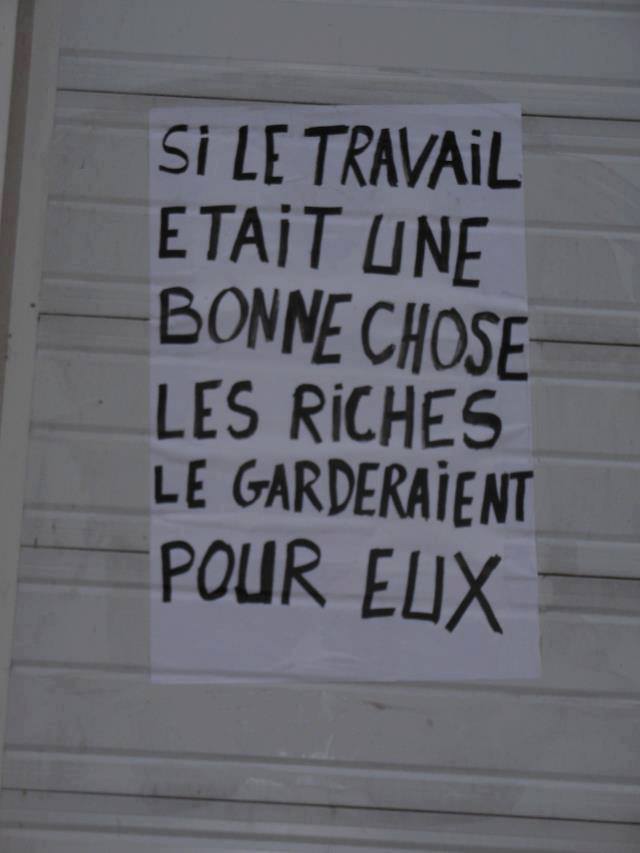 Si LE TRAVAiL
ETAiT UNE
BONNE CHOSE
LES RiCHES
LE GARDERAiENT
POUR EUX